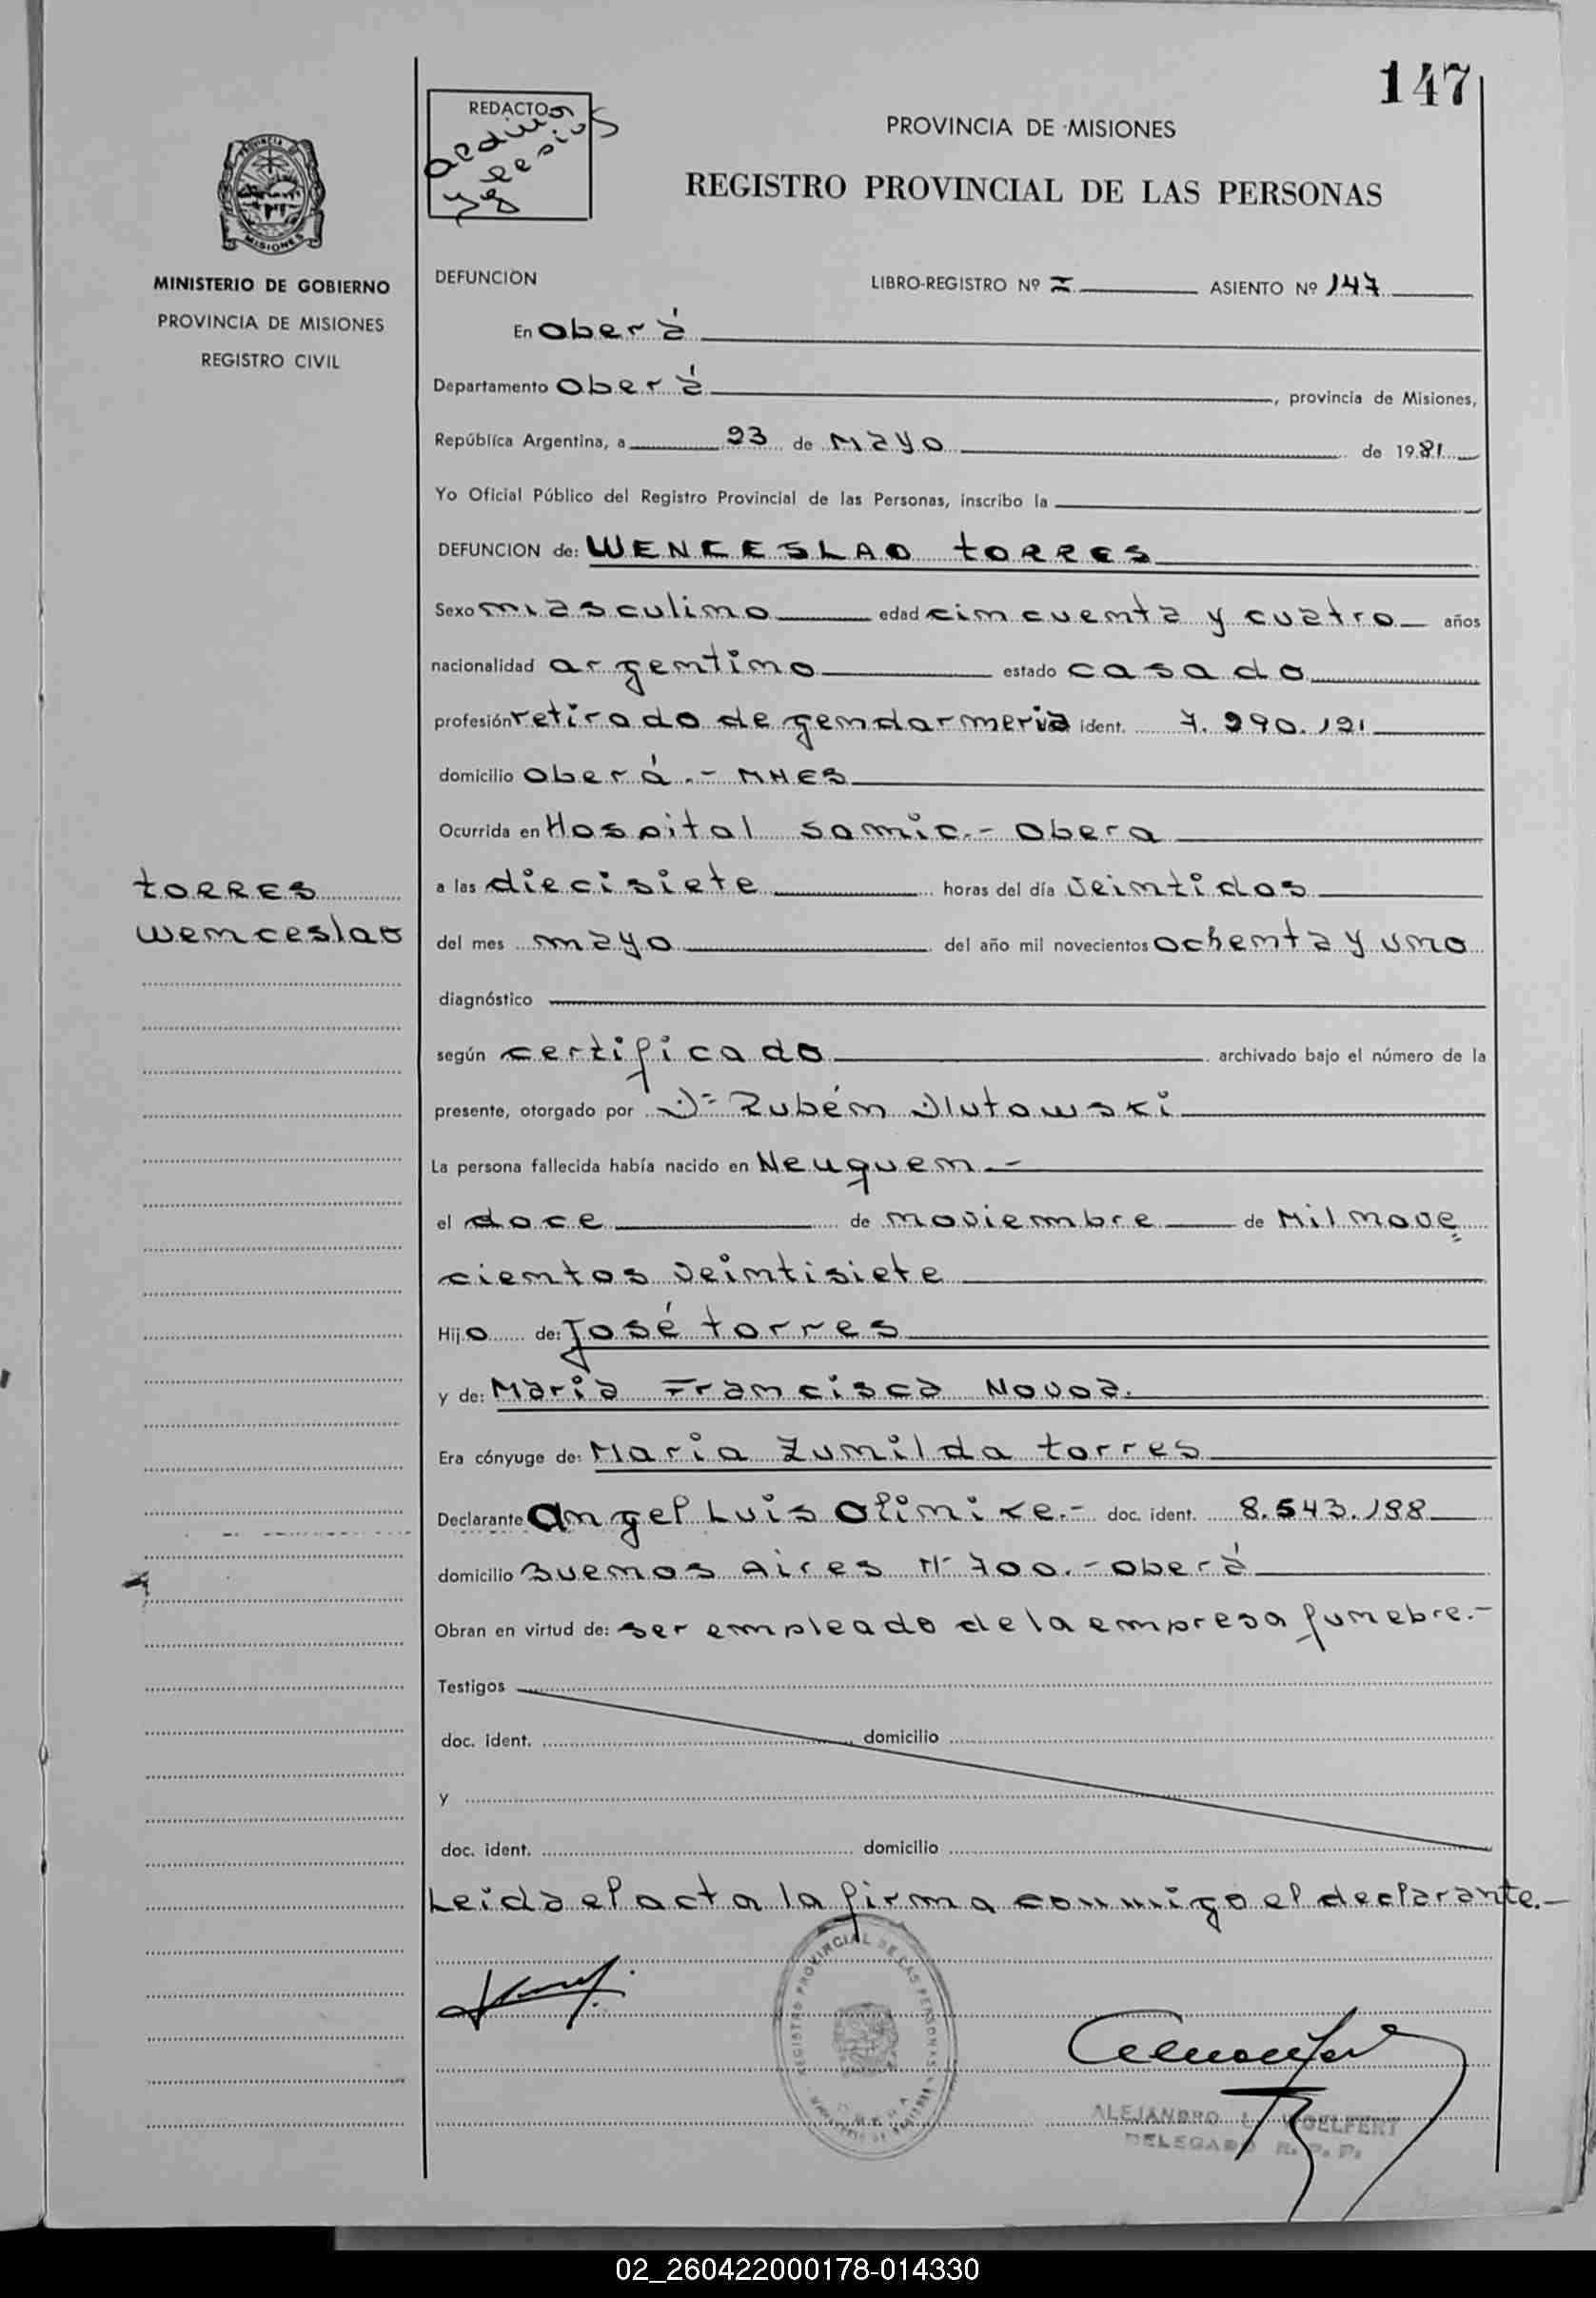 147
REDACTOR
PROVINCIA DE MISIONES
REGISTRO PROVINCIAL DE LAS PERSONAS
MISIONES
MINISTERIO DE GOBIERNO
PROVINCIA DE MISIONES
REGISTRO CIVIL
DEFUNCION LIBRO-REGISTRO Nº I ASIENTO Nº 147
En Oberá
Departamento Oberá, provincia de Misiones,
República Argentina, a 23 de Mayo de 1981
Yo Oficial Público del Registro Provincial de las Personas, inscribo la
DEFUNCION de: WENCESLAO TORRES
Sexo masculino edad cincuenta y cuatro años
nacionalidad argentino estado casado
profesión retirado de gendarmeria ident. 7.290.121
domicilio Oberá.- MNES
Ocurrida en Hospital Samic.- Obera
a las diecisiete horas del día veintidos
del mes mayo del año mil novecientos ochenta y uno
diagnóstico
según certificado archivado bajo el número de la
presente, otorgado por Dr Rubén Dlutowski
La persona fallecida había nacido en Neuquen.-
el doce de noviembre de Mil nove
cientos veintisiete
Hijo de: José torres
y de: Maria Francisca Novoa.
Era cónyuge de: Maria Zunilda torres
Declarante Angel Luis Olinike.- doc. ident. 8.543.188
domicilio Buenos Aires Nº 700.- Oberá
Obran en virtud de: ser empleado de la empresa funebre.-
Testigos
doc. ident. domicilio
y
doc. ident. domicilio
Leida el acta la firma conmigo el declarante.-
torres
Wenceslao
REGISTRO PROVINCIAL DE LAS PERSONAS
ALEJANDRO L. WOELFERT
DELEGADO R. P. P.
02_260422000178-014330